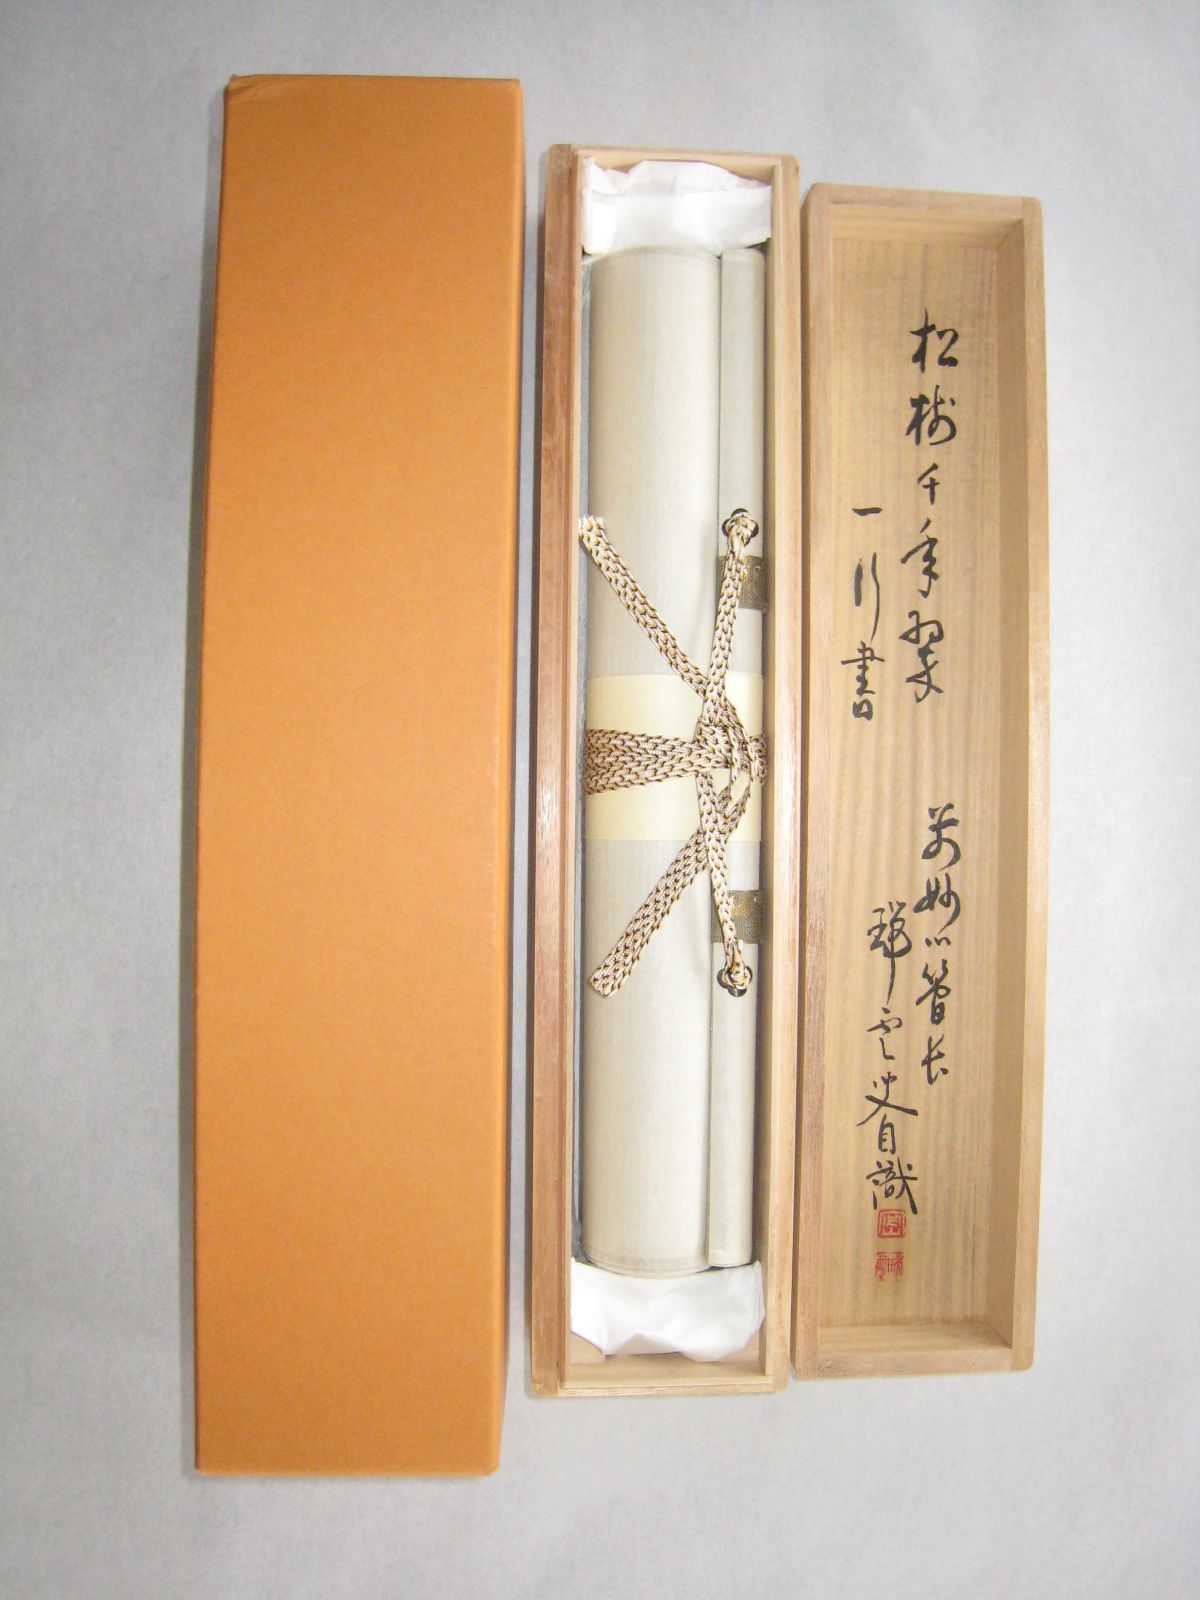 松樹千年翠
一行書
前妙心管長
瑞雲叟自識